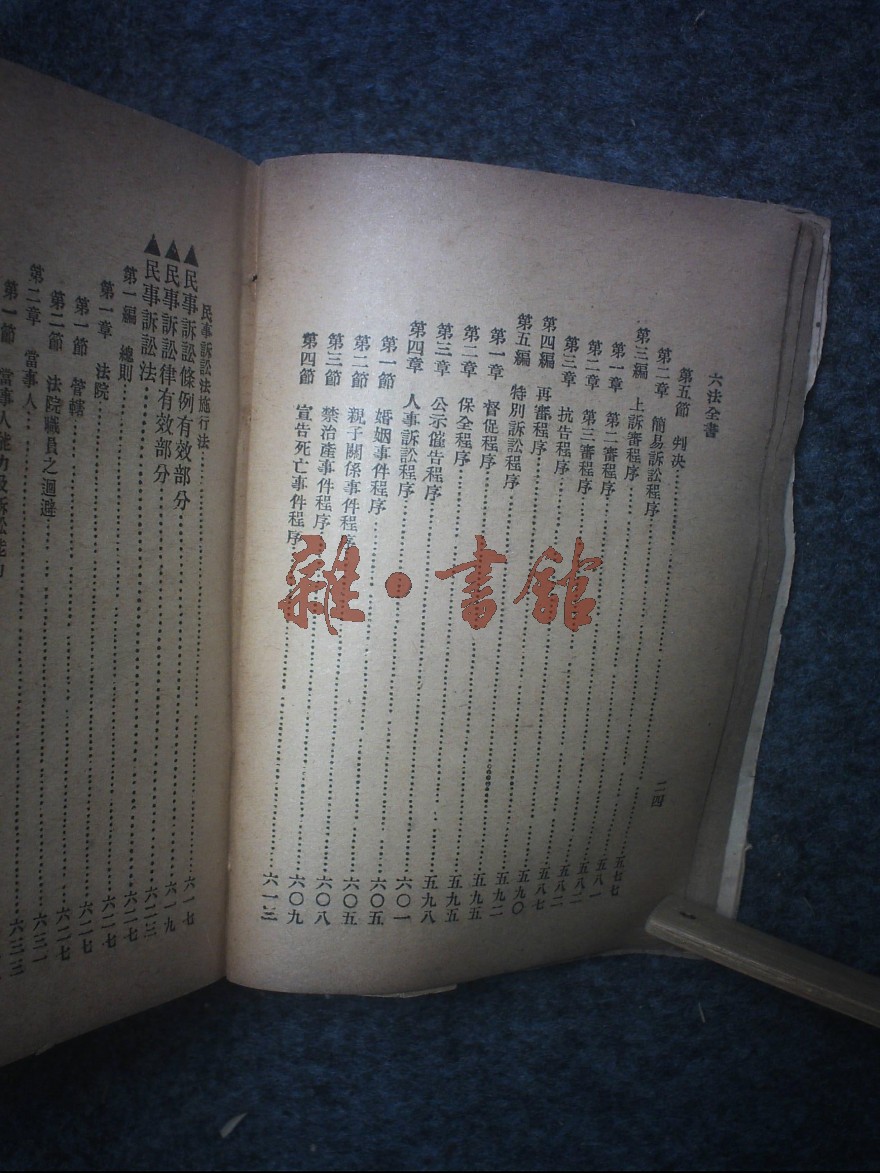 六法全書 二四
第五節 判決……五七七
第二章 簡易訴訟程序……五八一
第三編 上訴審程序……五八二
第一章 第二審程序……五八二
第二章 第三審程序……五八七
第三章 抗告程序……五九〇
第四編 再審程序……五九二
第五編 特別訴訟程序……五九五
第一章 督促程序……五九五
第二章 保全程序……五九八
第三章 公示催告程序……六〇一
第四章 人事訴訟程序……六〇五
第一節 婚姻事件程序……六〇五
第二節 親子關係事件程序……六〇八
第三節 禁治產事件程序……六〇九
第四節 宣告死亡事件程序……六一三
民事訴訟法施行法……六一七
▲民事訴訟條例有效部分……六一九
▲民事訴訟律有效部分……六二三
▲民事訴訟法……六二七
第一編 總則……六二七
第一章 法院……六二七
第一節 管轄……六二七
第二節 法院職員之迴避……六三一
第二章 當事人……六三三
第一節 當事人能力及訴訟能力
雜·書館